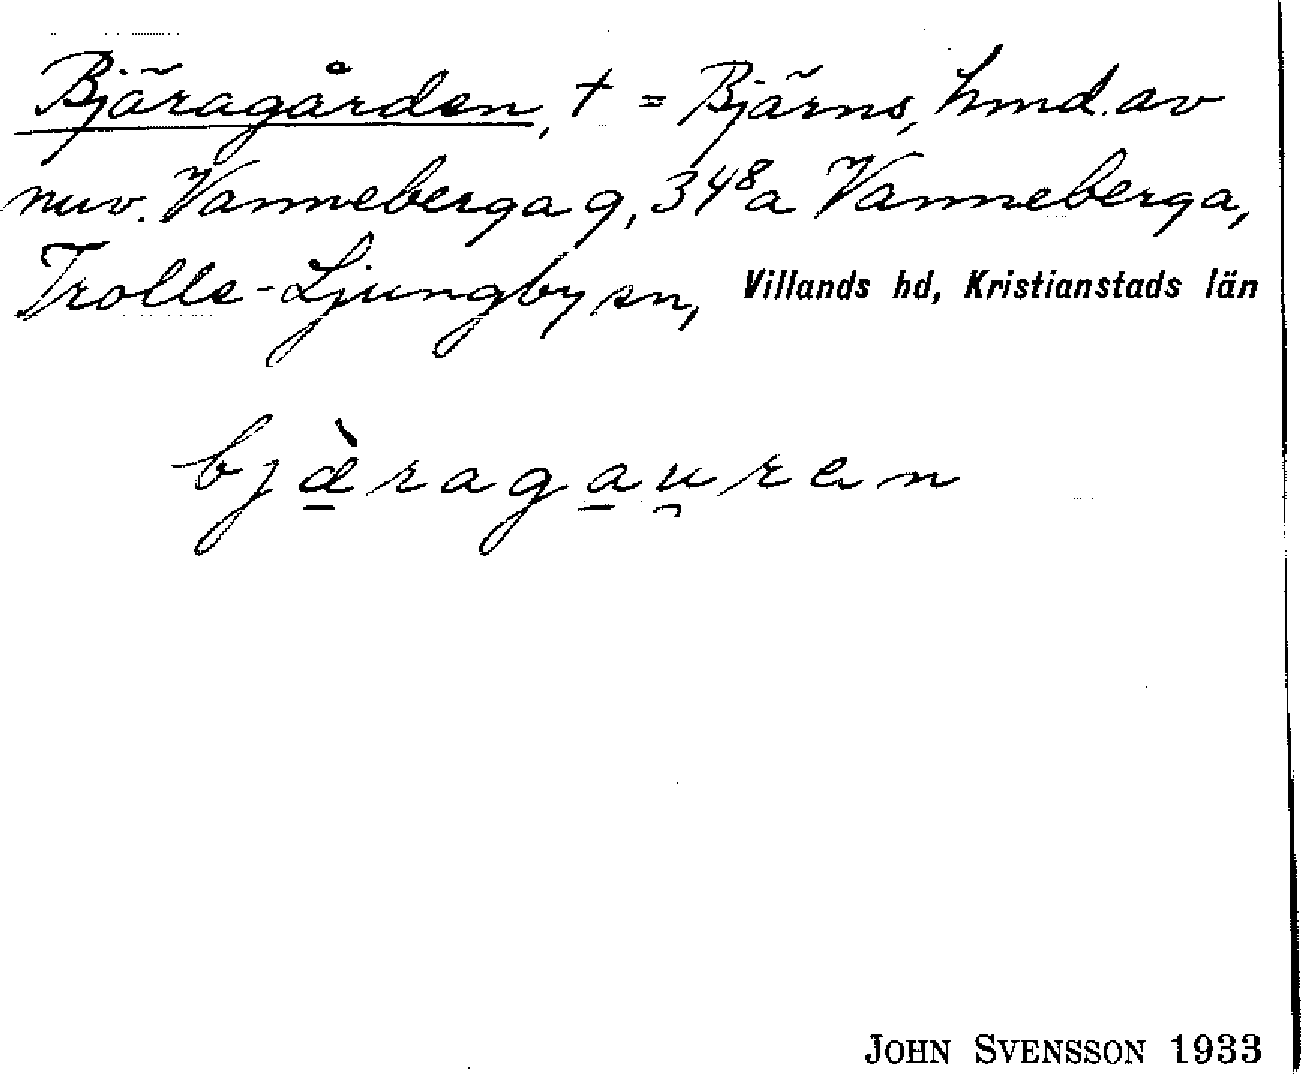 Bjäragården, † = Bjärns, hmd. av
nuv. Vanneberga g, 34⁸a Vanneberga,
Trolle-Ljungby sn, Villands hd, Kristianstads län
bjæ̠̀raga̠u̯ren
JOHN SVENSSON 1933